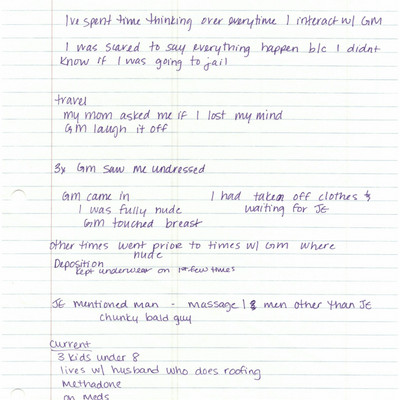 Ive spent time thinking over everytime I interact w/ GM
I was scared to say everything happen b/c I didnt
know if I was going to jail
travel
my mom asked me if I lost my mind
GM laugh it off
3x GM saw me undressed
GM came in
I was fully nude
GM touched breast
I had taken off clothes &
waiting for JE
other times went prior to times w/ GM where
nude
Deposition
kept underwear on 1st few times
JE mentioned man - massage | men other than JE
chunky bald guy
Current
3 kids under 8
lives w/ husband who does roofing
Methadone
on Meds